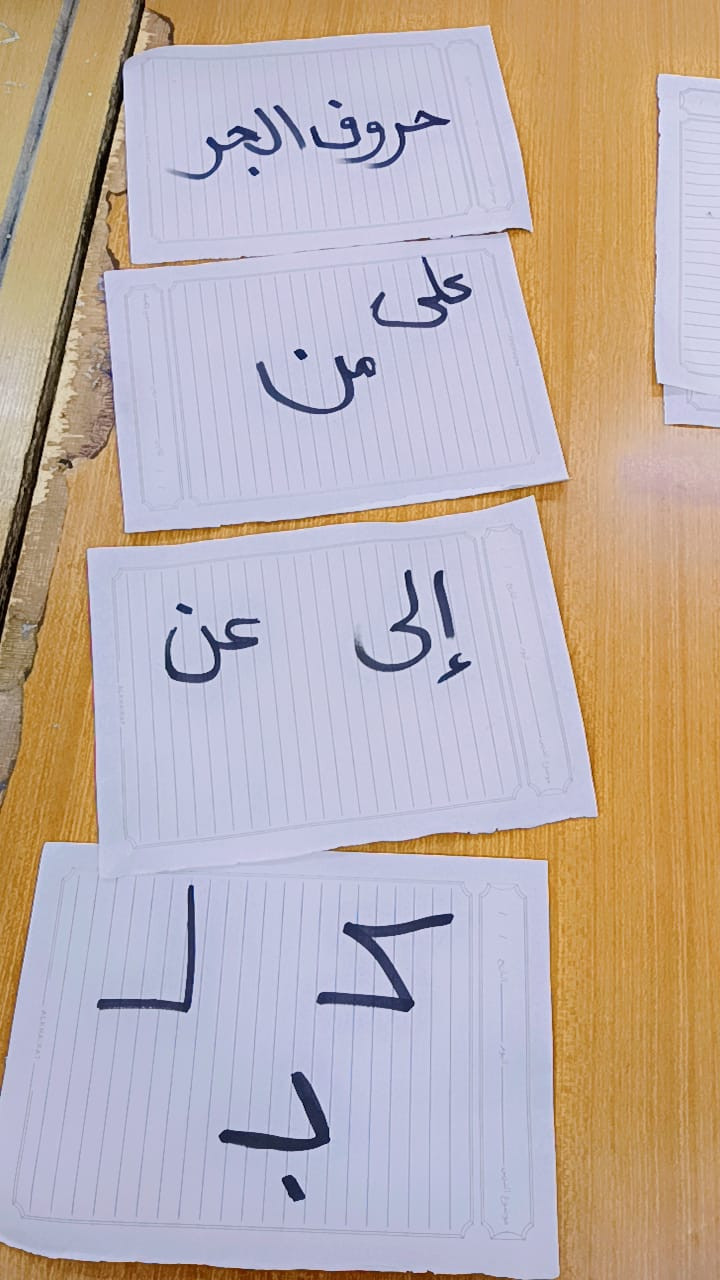 حروف الجر
على
من
إلى عن
كـ لـ
بـ